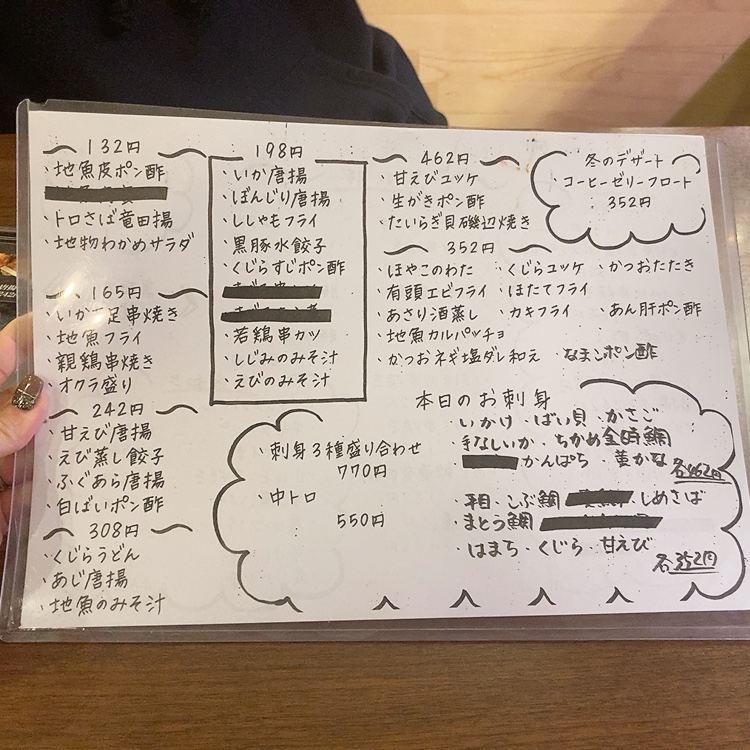 132円
・地魚皮ポン酢
・トロさば竜田揚
・地物わかめサラダ
165円
・いか足串焼き
・地魚フライ
・親鶏串焼き
・オクラ盛り
242円
・甘えび唐揚
・えび蒸し餃子
・ふぐあら唐揚
・白ばいポン酢
308円
・くじらうどん
・あじ唐揚
・地魚のみそ汁
198円
・いか唐揚
・ぼんじり唐揚
・ししゃもフライ
・黒豚水餃子
・くじらすじポン酢
・若鶏串カツ
・しじみのみそ汁
・えびのみそ汁
462円
・甘えびユッケ
・生がきポン酢
・たいらぎ貝磯辺焼き
冬のデザート
コーヒーゼリーフロート
352円
352円
・ほやこのわた ・くじらユッケ ・かつおたたき
・有頭エビフライ ・ほたてフライ
・あさり酒蒸し ・カキフライ ・あん肝ポン酢
・地魚カルパッチョ
・かつおネギ塩ダレ和え ・なまこポン酢
・刺身3種盛り合わせ
770円
・中トロ
550円
本日のお刺身
・いかけ ・ばい貝 ・かさご
・手なしいか ・ちかめ金時鯛
・かんぱち ・黄かな
各462円
・平目 ・こぶ鯛 ・しめさば
・まとう鯛
・はまち ・くじら ・甘えび
各352円